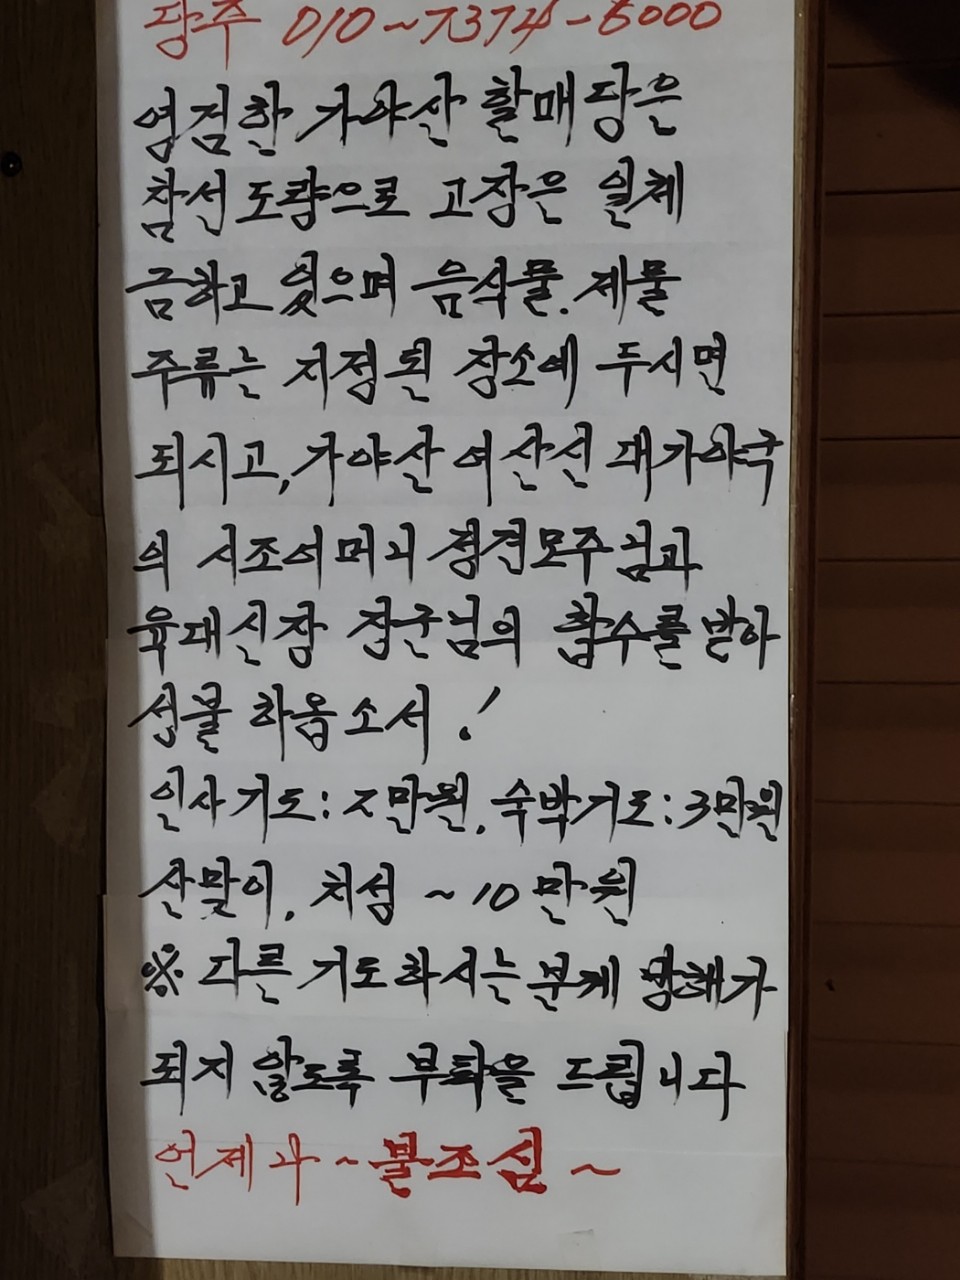 당주 010~7374-6000
영점한 가야산 할매당은
참선도량으로 고장은 일체
금하고 있으며 음식물. 제물
주류는 지정된 장소에 두시면
되시고, 가야산 여산신 대가야국
의 시조어머니 정견모주님과
육대신장 장군님의 합수를 받아
선불 하옵소서!
인사기도: 2만원, 숙박기도: 3만원
산맞이, 치성 ~ 10만원
※ 다른 기도하시는 분께 방해가
되지 않도록 부탁을 드립니다
언제나 ~ 불조심 ~